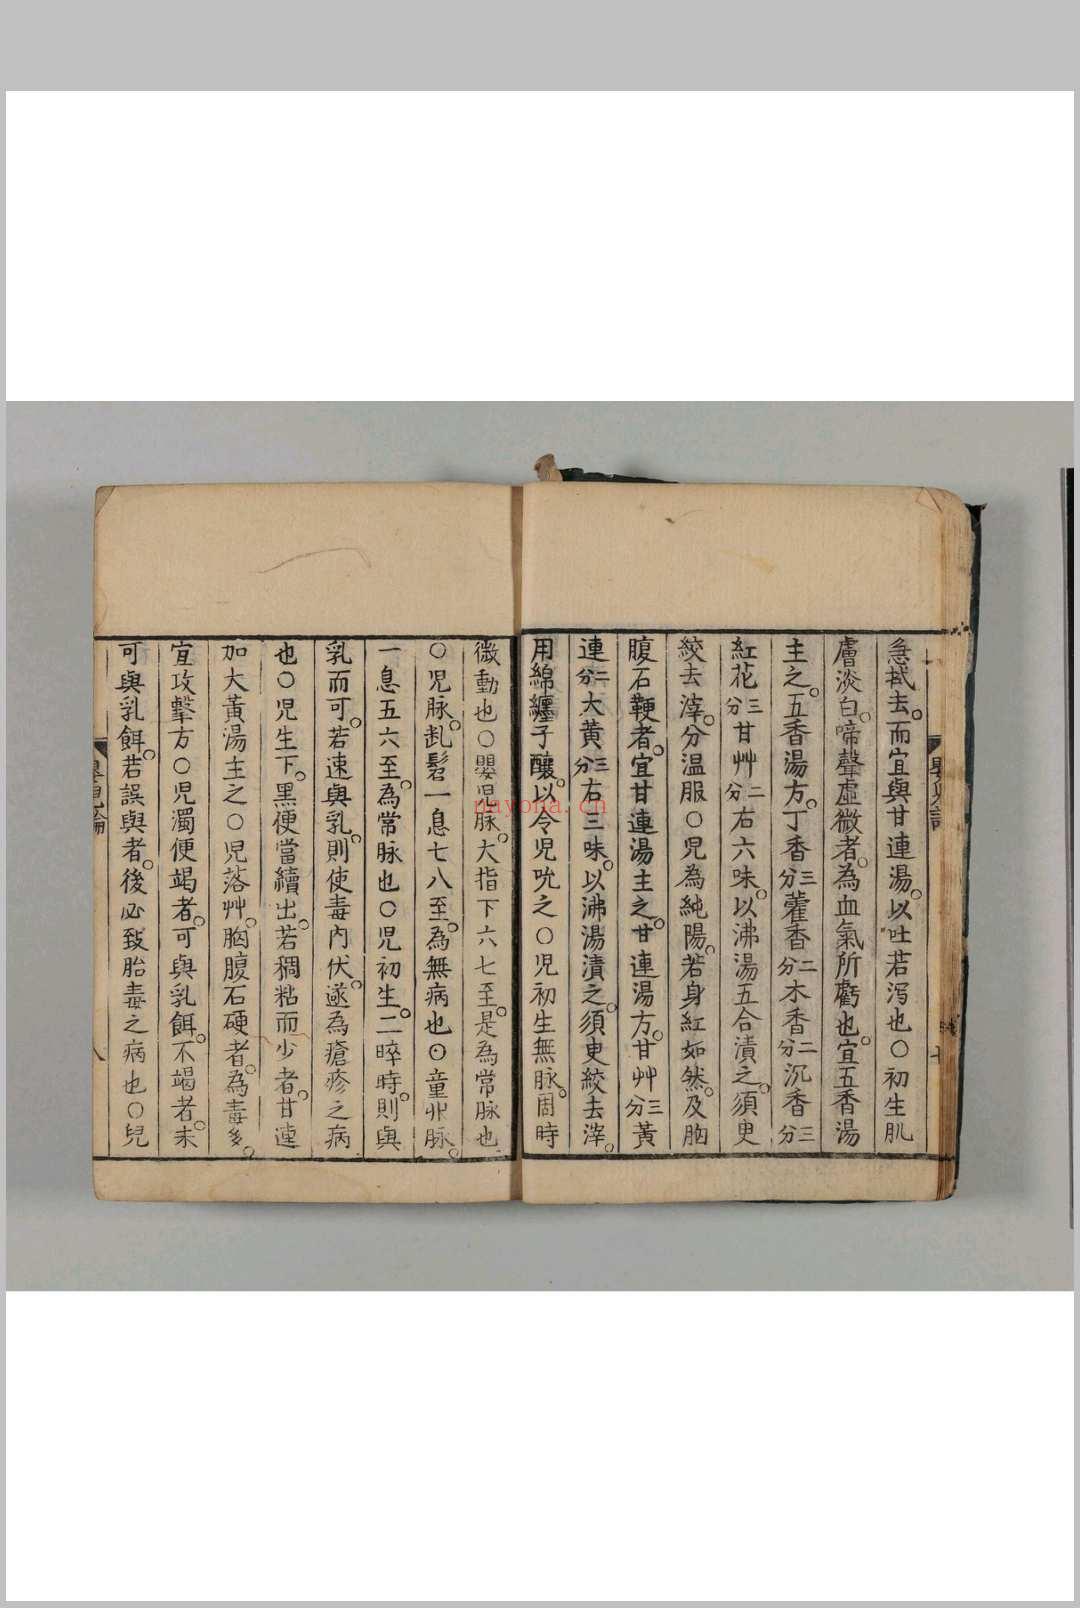 急拭去。而宜與甘連湯。以吐若瀉也〇初生肌
膚淡白。啼聲虛微者。為血氣所虧也。宜五香湯
主之。五香湯方。丁香三分藿香二分木香二分沉香三分
紅花三分甘艸二分右六味。以沸湯五合漬之。須臾
絞去滓。分温服〇児為純陽。若身紅如然。及胸
腹石鞕者。宜甘連湯主之。甘連湯方。甘艸三分黃
連二分大黄三分右三味。以沸湯漬之。須臾絞去滓。
用綿纏子釀。以令児吮之〇児初生無脉。周時
微動也〇嬰児脉。大指下六七至。是為常脉也
〇児脉。齔髫一息七八至。為無病也〇童丱脉。
一息五六至。為常脉也〇児初生。二晬時。則與
乳而可。若速與乳。則使毒内伏。遂為瘡疹之病
也〇児生下。黑便當續出。若稠粘而少者。甘連
加大黄湯主之〇児落艸。胸腹石硬者。為毒多。
宜攻擊方〇児濁便竭者。可與乳餌。不竭者。未
可與乳餌。若誤與者。後必致胎毒之病也〇兒
嬰児論
八
nayona.cn